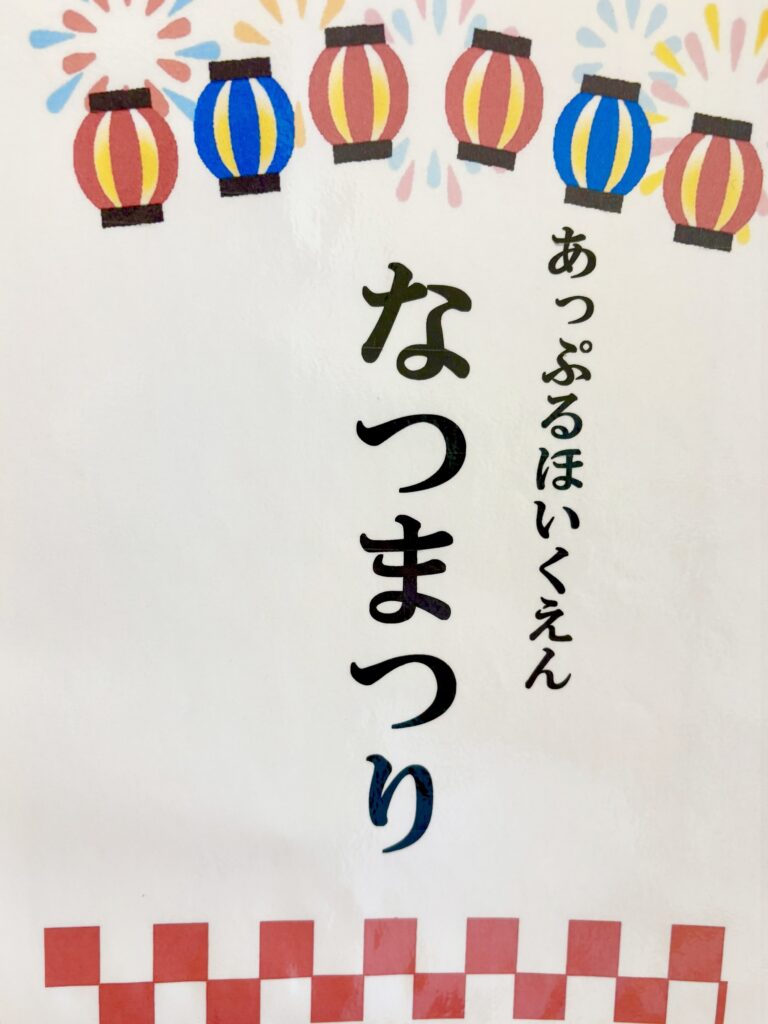 あっぷるほいくえん
なつまつり